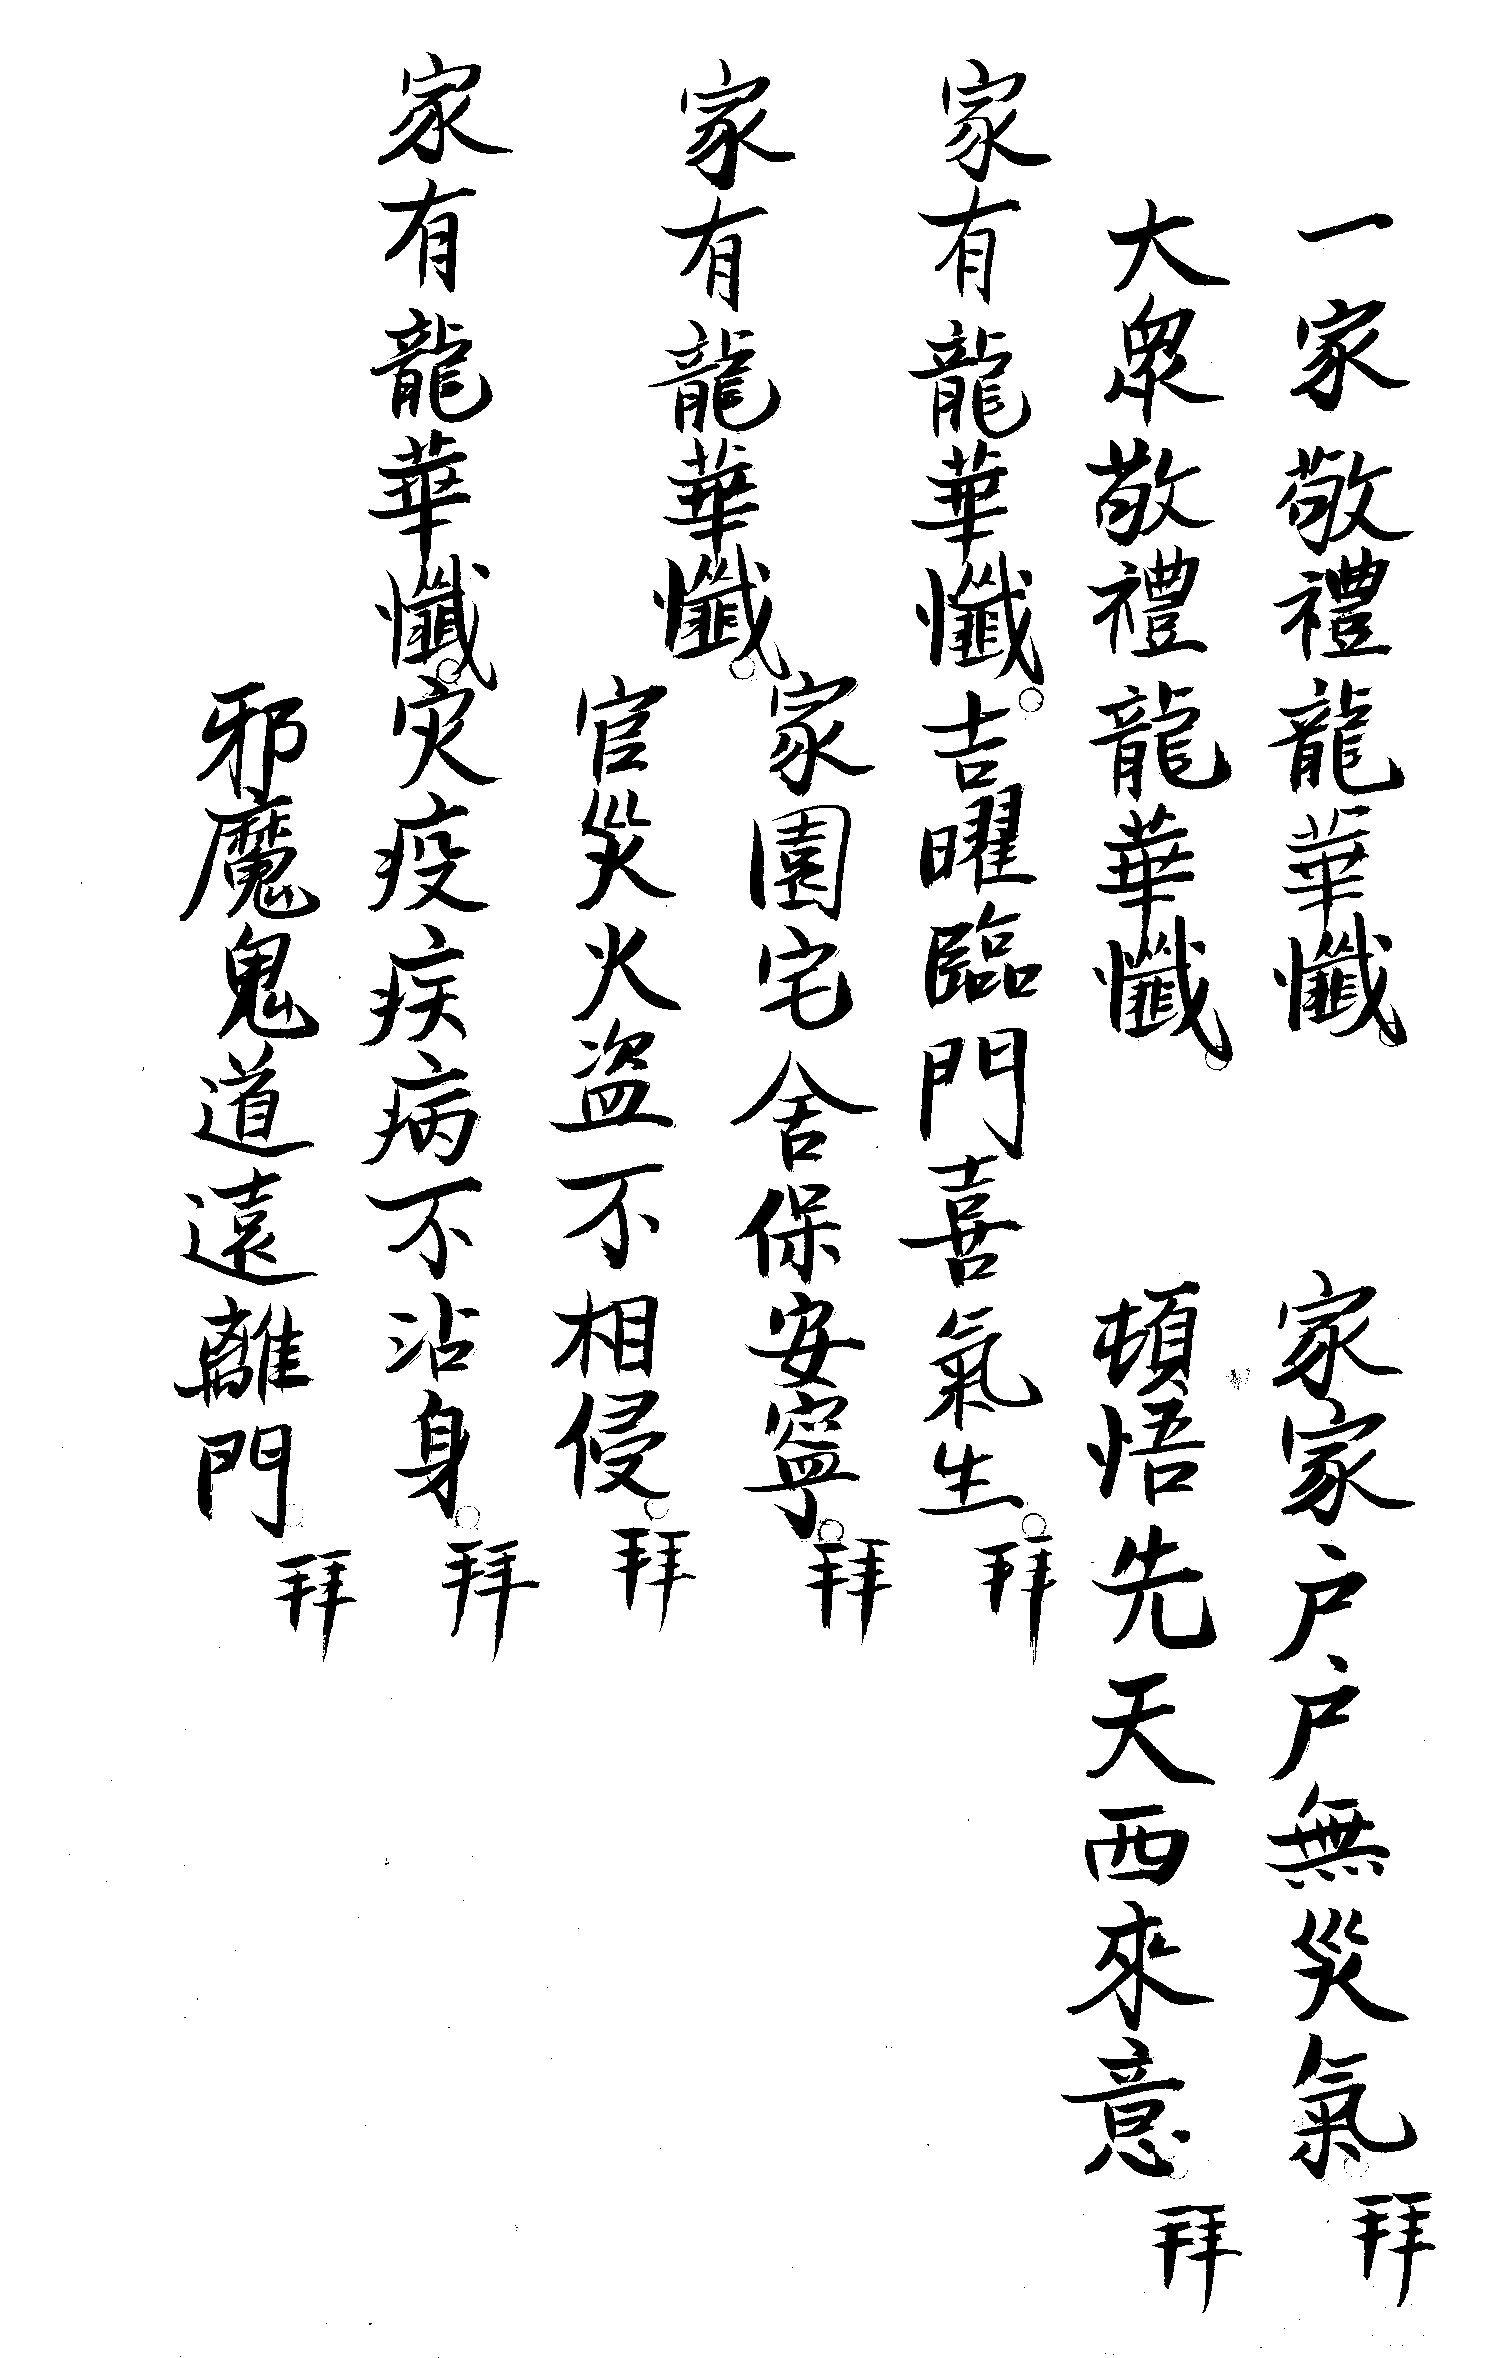 一家敬禮龍華懺。家家户户無災氣。拜
大眾敬禮龍華懺。頓悟先天西來意。拜
家有龍華懺。吉曜臨門喜氣生。拜
家園宅舍保安寧。拜
家有龍華懺。
官災火盜不相侵。拜
家有龍華懺。灾疫疾病不沾身。拜
邪魔鬼道遠離門。拜